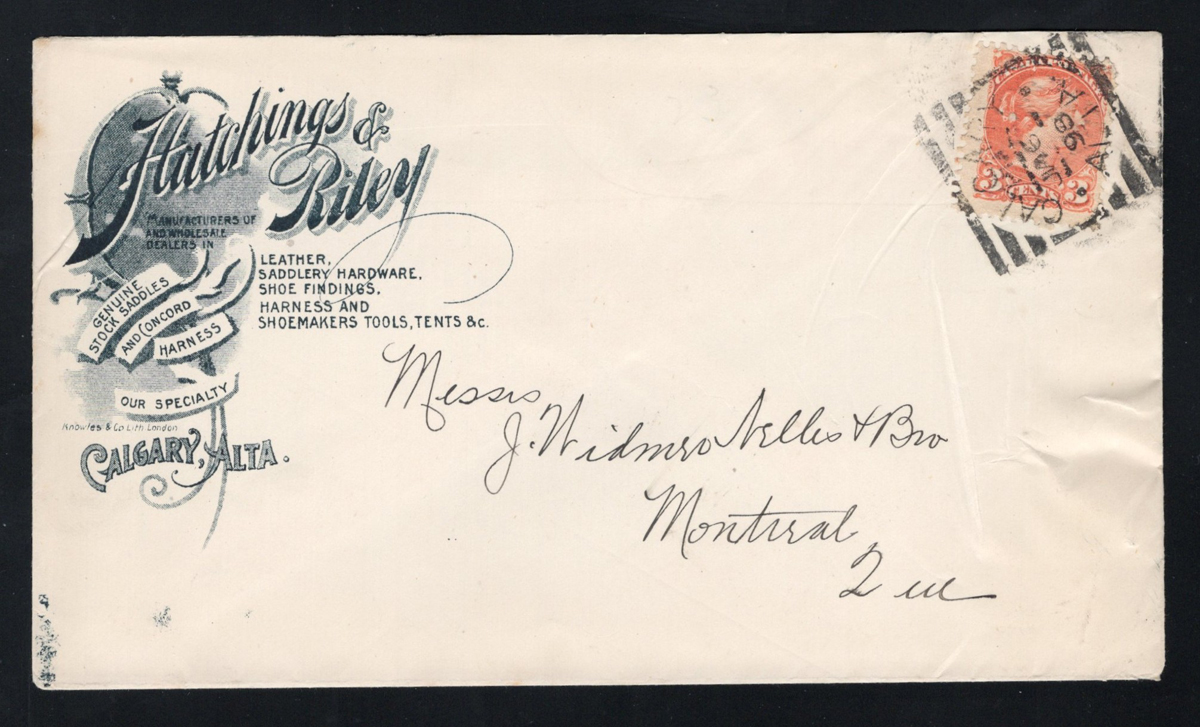 Hutchings &
Riley
MANUFACTURERS OF
AND WHOLESALE
DEALERS IN
LEATHER,
SADDLERY HARDWARE,
SHOE FINDINGS,
HARNESS AND
SHOEMAKERS TOOLS, TENTS &c.
GENUINE
STOCK SADDLES
AND CONCORD
HARNESS
OUR SPECIALTY
Knowles & Co Lith London
CALGARY, ALTA.
3 CENTS 3
CALGARY
98
Messrs
J. Widmer Nelles & Bro
Montreal
Que